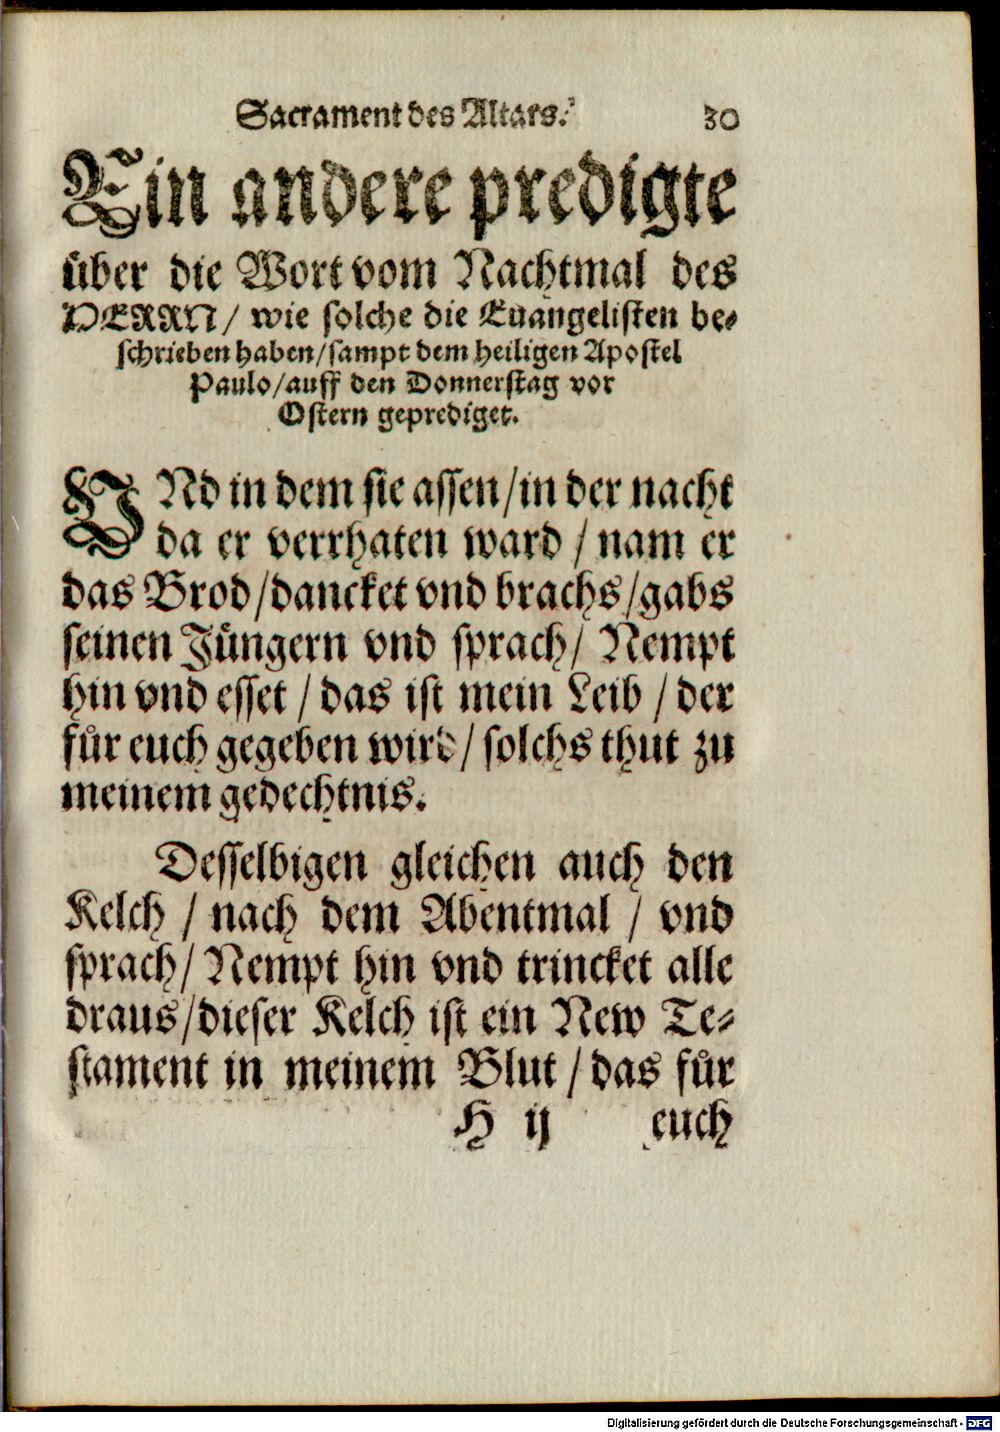 Sacrament des Altars. 30
Ein andere predigte
über die Wort vom Nachtmal des
HERRN / wie solche die Euangelisten be-
schrieben haben / sampt dem heiligen Apostel
Paulo / auff den Donnerstag vor
Ostern geprediget.
VNd in dem sie assen / in der nacht
da er verrhaten ward / nam er
das Brod / dancket vnd brachs / gabs
seinen Jüngern vnd sprach / Nempt
hin vnd esset / das ist mein Leib / der
fůr euch gegeben wird / solchs thut zu
meinem gedechtnis.
Desselbigen gleichen auch den
Kelch / nach dem Abentmal / vnd
sprach / Nempt hin vnd trincket alle
draus / dieser Kelch ist ein New Te-
stament in meinem Blut / das fůr
H ij euch
Digitalisierung gefördert durch die Deutsche Forschungsgemeinschaft - DFG